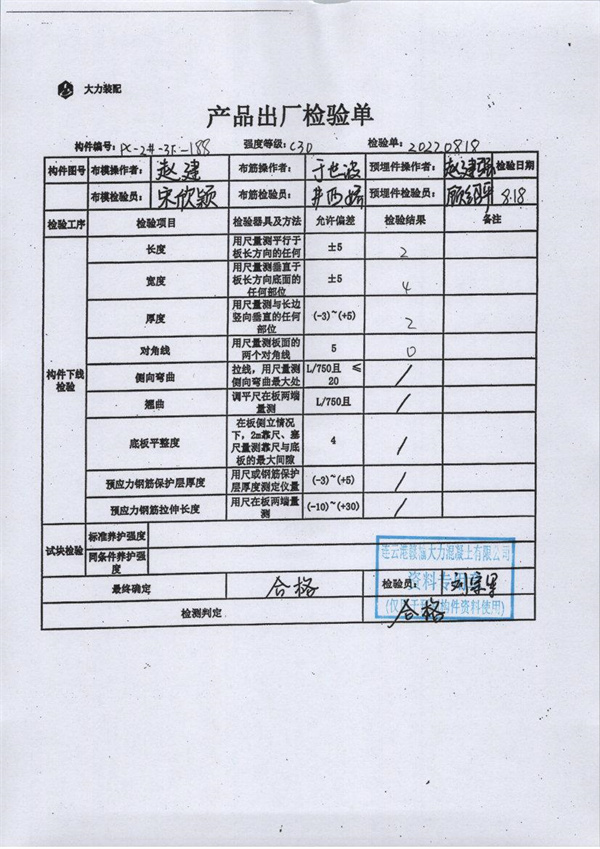 大力装配
产品出厂检验单
构件编号: PC-2#-3F-188 强度等级: C30 检验单: 20220818
构件图号 布模操作者: 赵建 布筋操作者: 于世波 预埋件操作者: 赵建强 检验日期
布模检验员: 宋欣颖 布筋检验员: 预埋件检验员: 8.18
检验工序 检验项目 检验器具及方法 允许偏差 检验结果 备注
构件下线检验
长度 用尺量测平行于板长方向的任何 ±5 2
宽度 用尺量测垂直于板长方向底面的任何部位 ±5 4
厚度 用尺量测与长边竖向垂直的任何部位 (-3)~(+5) 2
对角线 用尺量测板面的两个对角线 5 0
侧向弯曲 拉线,用尺量测侧向弯曲最大处 L/750且 ≤20 /
翘曲 调平尺在板两端量测 L/750且 /
底板平整度 在板侧立情况下,2m靠尺、塞尺量测靠尺与底板的最大间隙 4 /
预应力钢筋保护层厚度 用尺或钢筋保护层厚度测定仪量 (-3)~(+5) /
预应力钢筋拉伸长度 用尺在板两端量测 (-10)~(+30) /
试块检验 标准养护强度
同条件养护强度
最终确定 合格 检验员:
检测判定 合格
连云港赣榆大力混凝土有限公司
资料专用
(仅用于 构件资料使用)